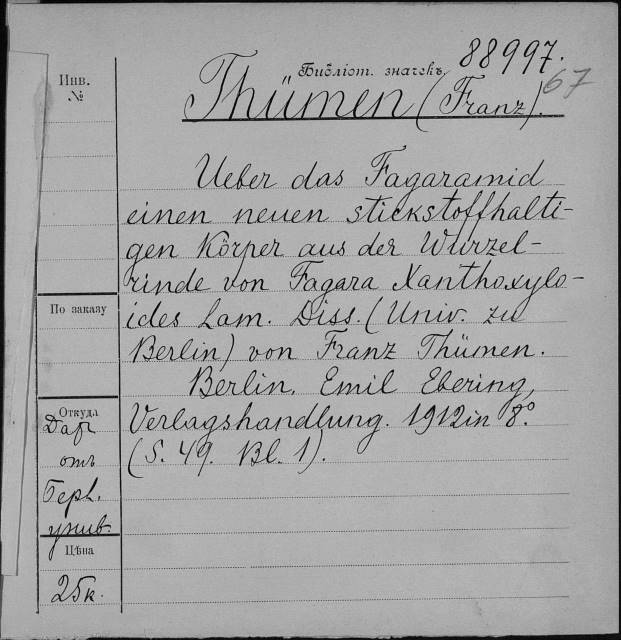 88997.
Библіот. значекъ
67
Инв.
№
Thümen (Franz).
Ueber das Fagaramid
einen neuen stickstoffhalti-
gen Körper aus der Wurzel-
rinde von Fagara Xanthoxylo-
ides Lam. Diss. (Univ. zu
Berlin) von Franz Thümen.
Berlin. Emil Ebering,
Verlagshandlung. 1912 in 8º.
(S. 49. Bl. 1).
По заказу
Откуда
Дар
отъ
Берл.
унив.
Цѣна
25к.